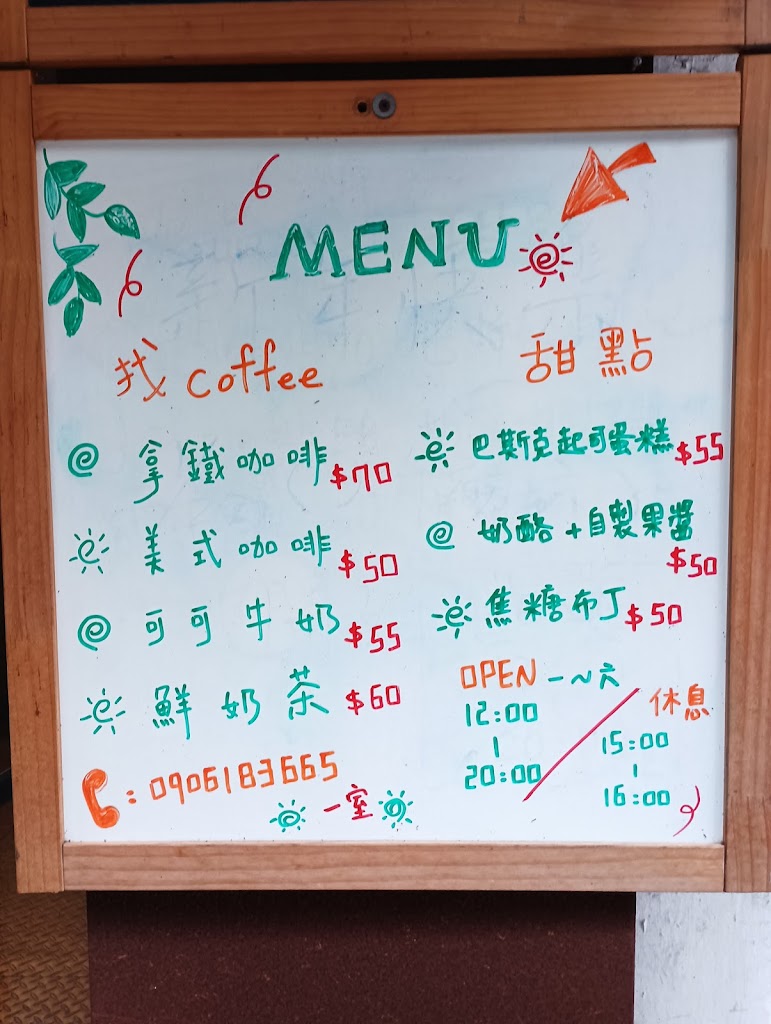 MENU
找 coffee
拿鐵咖啡 $70
美式咖啡 $50
可可牛奶 $55
鮮奶茶 $60
甜點
巴斯克起司蛋糕 $55
奶酪+自製果醬
$50
焦糖布丁 $50
OPEN 一~六
12:00
|
20:00
休息
15:00
|
16:00
:0906183665
一室